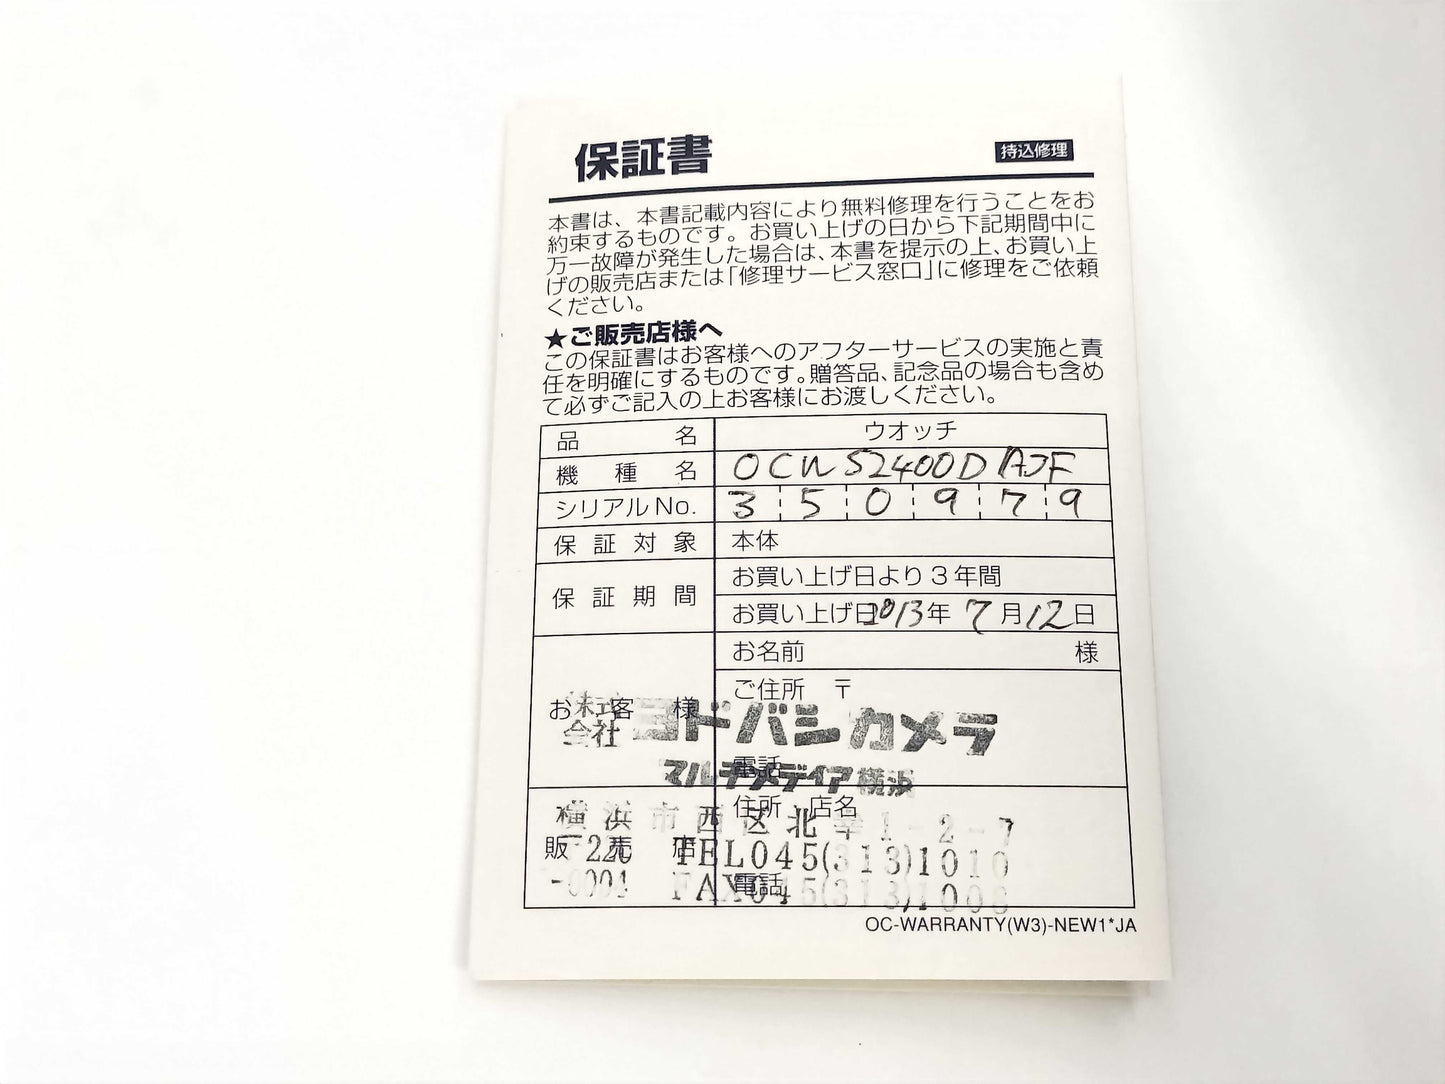 保証書
持込修理
本書は、本書記載内容により無料修理を行うことをお
約束するものです。お買い上げの日から下記期間中に
万一故障が発生した場合は、本書を提示の上、お買い上
げの販売店または「修理サービス窓口」に修理をご依頼
ください。
★ご販売店様へ
この保証書はお客様へのアフターサービスの実施と責
任を明確にするものです。贈答品、記念品の場合も含め
て必ずご記入の上お客様にお渡しください。
品名 ウオッチ
機種名 OCW S2400D 1AJF
シリアルNo. 3 5 0 9 7 9
保証対象 本体
保証期間 お買い上げ日より3年間
お買い上げ日 2013年 7月12日
お客様 お名前 様
ご住所 〒
株式会社 ヨドバシカメラ
マルチメディア横浜
電話
販売店 住所 店名
横浜市西区北幸1-2-7
220-0004 TEL045(313)1010
FAX045(313)1008
電話
OC-WARRANTY(W3)-NEW1*JA